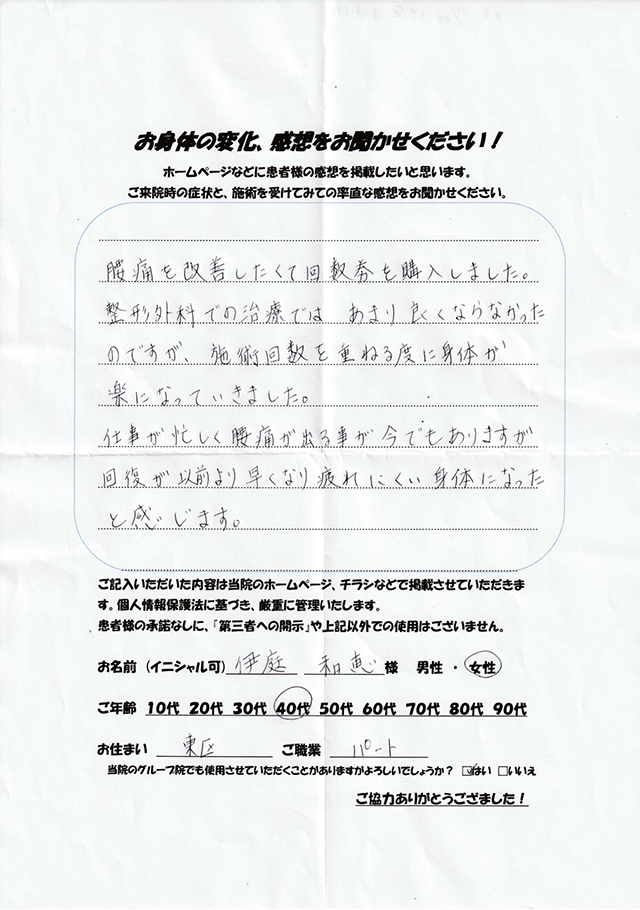 お身体の変化、感想をお聞かせください！
ホームページなどに患者様の感想を掲載したいと思います。
ご来院時の症状と、施術を受けてみての率直な感想をお聞かせください。
腰痛を改善したくて回数券を購入しました。
整形外科での治療では あまり良くならなかった
のですが、施術回数を重ねる度に身体が
楽になっていきました。
仕事が忙しく腰痛が出る事が今でもありますが
回復が以前より早くなり疲れにくい身体になった
と感じます。
ご記入いただいた内容は当院のホームページ、チラシなどで掲載させていただきま
す。個人情報保護法に基づき、厳重に管理いたします。
患者様の承諾なしに、「第三者への開示」や上記以外での使用はございません。
お名前（イニシャル可） 伊庭 和恵 様 男性 ・ 女性
ご年齢 10代 20代 30代 40代 50代 60代 70代 80代 90代
お住まい 東区 ご職業 パート
当院のグループ院でも使用させていただくことがありますがよろしいでしょうか？ ☑はい □いいえ
ご協力ありがとうござました！